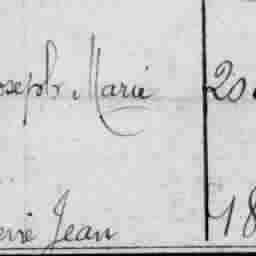 oseph Marie 20
erre Jean 18